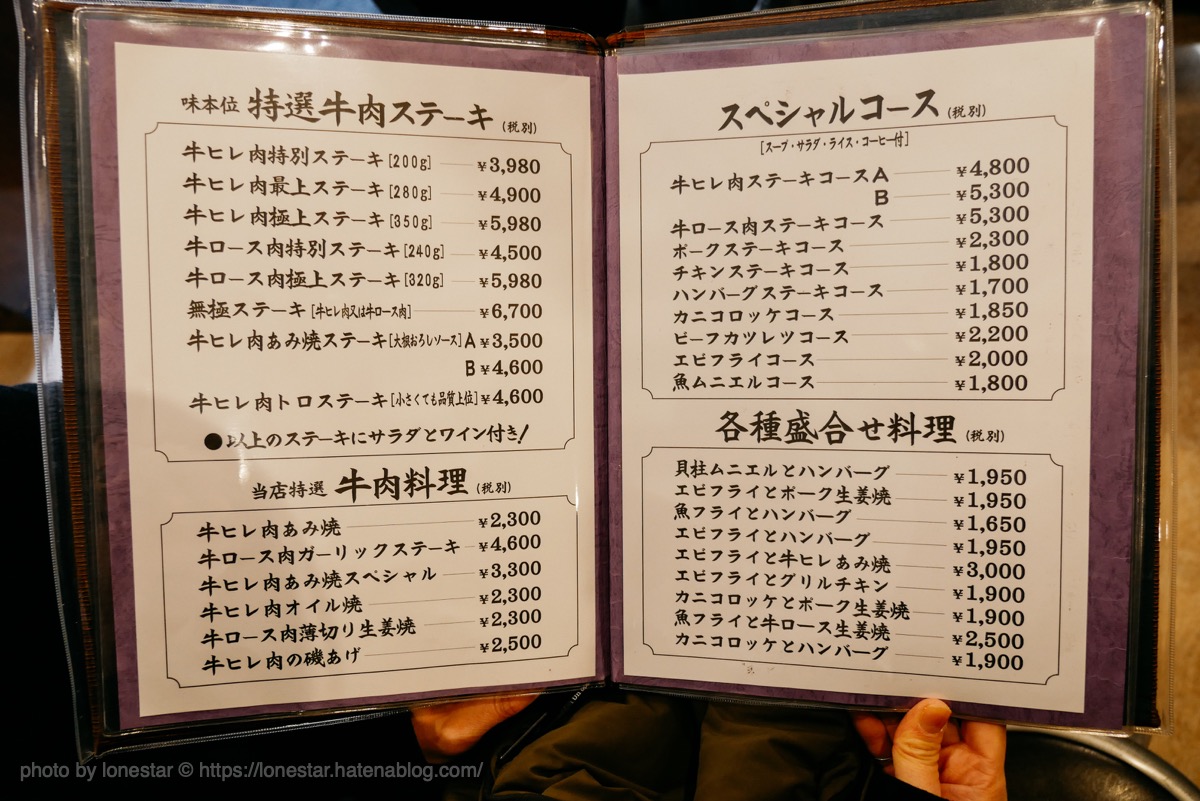 味本位 特選牛肉ステーキ (税別)
牛ヒレ肉特別ステーキ[200g] ¥3,980
牛ヒレ肉最上ステーキ[280g] ¥4,900
牛ヒレ肉極上ステーキ[350g] ¥5,980
牛ロース肉特別ステーキ[240g] ¥4,500
牛ロース肉極上ステーキ[320g] ¥5,980
無極ステーキ[牛ヒレ肉又は牛ロース肉] ¥6,700
牛ヒレ肉あみ焼ステーキ[大根おろしソース]A ¥3,500
B ¥4,600
牛ヒレ肉トロステーキ[小さくても品質上位] ¥4,600
●以上のステーキにサラダとワイン付き!
当店特選 牛肉料理 (税別)
牛ヒレ肉あみ焼 ¥2,300
牛ロース肉ガーリックステーキ ¥4,600
牛ヒレ肉あみ焼スペシャル ¥3,300
牛ヒレ肉オイル焼 ¥2,300
牛ロース肉薄切り生姜焼 ¥2,300
牛ヒレ肉の磯あげ ¥2,500
スペシャルコース (税別)
[スープ・サラダ・ライス・コーヒー付]
牛ヒレ肉ステーキコースA ¥4,800
B ¥5,300
牛ロース肉ステーキコース ¥5,300
ポークステーキコース ¥2,300
チキンステーキコース ¥1,800
ハンバーグステーキコース ¥1,700
カニコロッケコース ¥1,850
ビーフカツレツコース ¥2,200
エビフライコース ¥2,000
魚ムニエルコース ¥1,800
各種盛合せ料理 (税別)
貝柱ムニエルとハンバーグ ¥1,950
エビフライとポーク生姜焼 ¥1,950
魚フライとハンバーグ ¥1,650
エビフライとハンバーグ ¥1,950
エビフライと牛ヒレあみ焼 ¥3,000
エビフライとグリルチキン ¥1,900
カニコロッケとポーク生姜焼 ¥1,900
魚フライと牛ロース生姜焼 ¥2,500
カニコロッケとハンバーグ ¥1,900
photo by lonestar © https://lonestar.hatenablog.com/